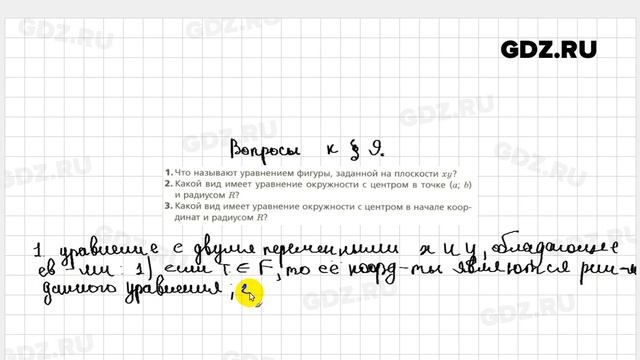 GDZ.RU
Вопросы к § 9.
1. Что называют уравнением фигуры, заданной на плоскости xy?
2. Какой вид имеет уравнение окружности с центром в точке (a; b)
и радиусом R?
3. Какой вид имеет уравнение окружности с центром в начале коор-
динат и радиусом R?
1. уравнение с двумя переменными x и y, обладающее
св-ми: 1) если T ∈ F, то её коорд-ты являются реш-м
данного уравнения;